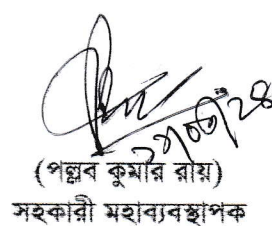 (পল্লব কুমার রায়)
সহকারী মহাব্যবস্থাপক